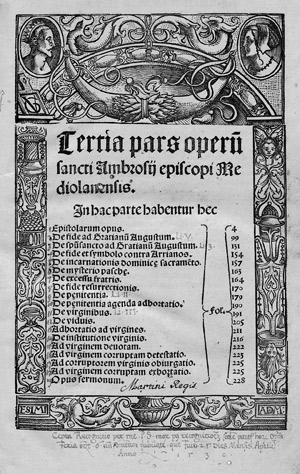 Tertia pars operū
sancti Ambrosij episcopi Me
diolanensis.
In hac parte habentur hec
Epistolarum opus. 4
De fide ad Gratianū Augustum. 99
De spūsancto ad Gratianū Augustum. 131
De fide et symbolo contra Arrianos. 154
De incarnationis dominicę sacramēto. 157
De mysterio paschę. 163
De excessu fratris. 164
De fide resurrectionis. 170
De penitentia. 179
De penitentia agenda adhortatio. 190
De virginibus. Fol. 191
De viduis. 205
Adhortatio ad virgines. 211
De institutione virginis. 216
Ad virginem deuotam. 222
Ad virginem corruptam detestatio. 223
Ad corruptorem virginis obiurgatio. 225
Ad virginem corruptam exhortatio. 225
Opus sermonum. 228
Martini Regis